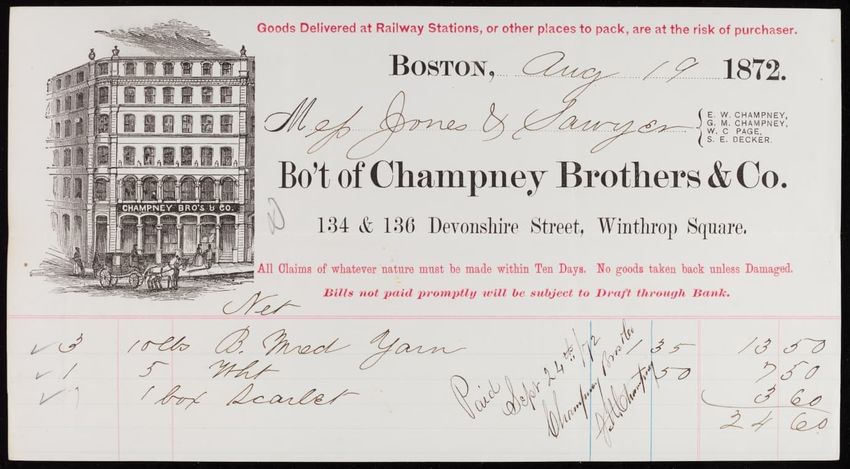 Goods Delivered at Railway Stations, or other places to pack, are at the risk of purchaser.
BOSTON, Aug 19 1872.
Mess Jones & Sawyer
E. W. CHAMPNEY,
G. M. CHAMPNEY,
W. C PAGE,
S. E. DECKER.
Bo't of Champney Brothers & Co.
CHAMPNEY BRO'S & CO.
134 & 136 Devonshire Street, Winthrop Square.
All Claims of whatever nature must be made within Ten Days. No goods taken back unless Damaged.
Bills not paid promptly will be subject to Draft through Bank.
Net
✓ 3 10 lbs B. Med Yarn 1 35 13 50
✓ 1 5 Wht 1 50 7 50
✓ 1 box Scarlet 3 60
24 60
Paid
Sept 24th /72
Champney Brothers